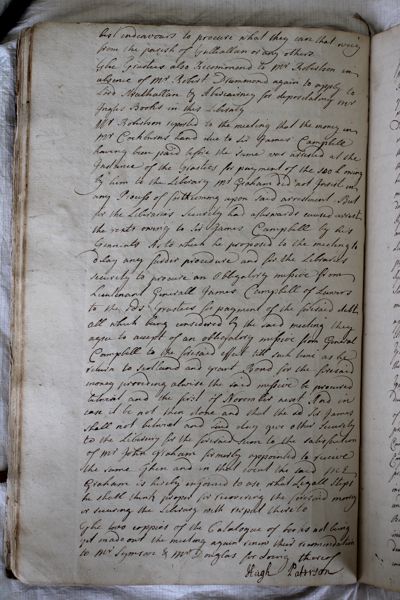 best endeavours to procure what they can that way
from the parish of Muthallan or any others
The Trustees also Recommend to Mr Robertson in
absence of Mr Robert Drummond again to apply to
Lord Strathallan & Abercairney for depositating Mr
Inglis Books in this Library
Mr Robertson reported to the meeting that the money in
Mr Cockburns hand due to Sir James Campbell
having been paid before the same was arrested at the
Instance of the Trustees for payment of the owing
by him to the Library Mr Graham did not Insist in
any Process of forthcoming upon said arrestment But
for the Libraries Security had afterwards caused arrest
the rents owing to Sir James Campbell by his
Tennents As to which he proposed to the meeting to
delay any furder procedure and for the Libraries
security to procure an Obligatory missive from
Lieutenant Generall James Campbell of Lawers
to the sds Trustees for payment of the foresaid debt
all which being considered by the said meeting they
agree to accept of an obligatory missive from General
Campbell to the foresaid effect till such time as he
return to Scotland and grant Bond for the foresaid
money providing alwise the said missive be procured
betwixt and the first of November next And in
case it be not then done and that the sd Sir James
shall not betwixt and said day give other Security
to the Library for the foresaid sum to the satisfaction
of Mr John Graham formerly appointed to receive
the same Then and in that event the said Mr
Graham is hereby impowered to use what Legall steps
he shall think proper for recovering the foresaid money
or securing the Library with respect thereto
The two coppies of the Catalogue of books not being
yet made out the meeting again renew their recomendation
to Mr Symson & Mr Douglas for doing thereof
Hugh Paterson